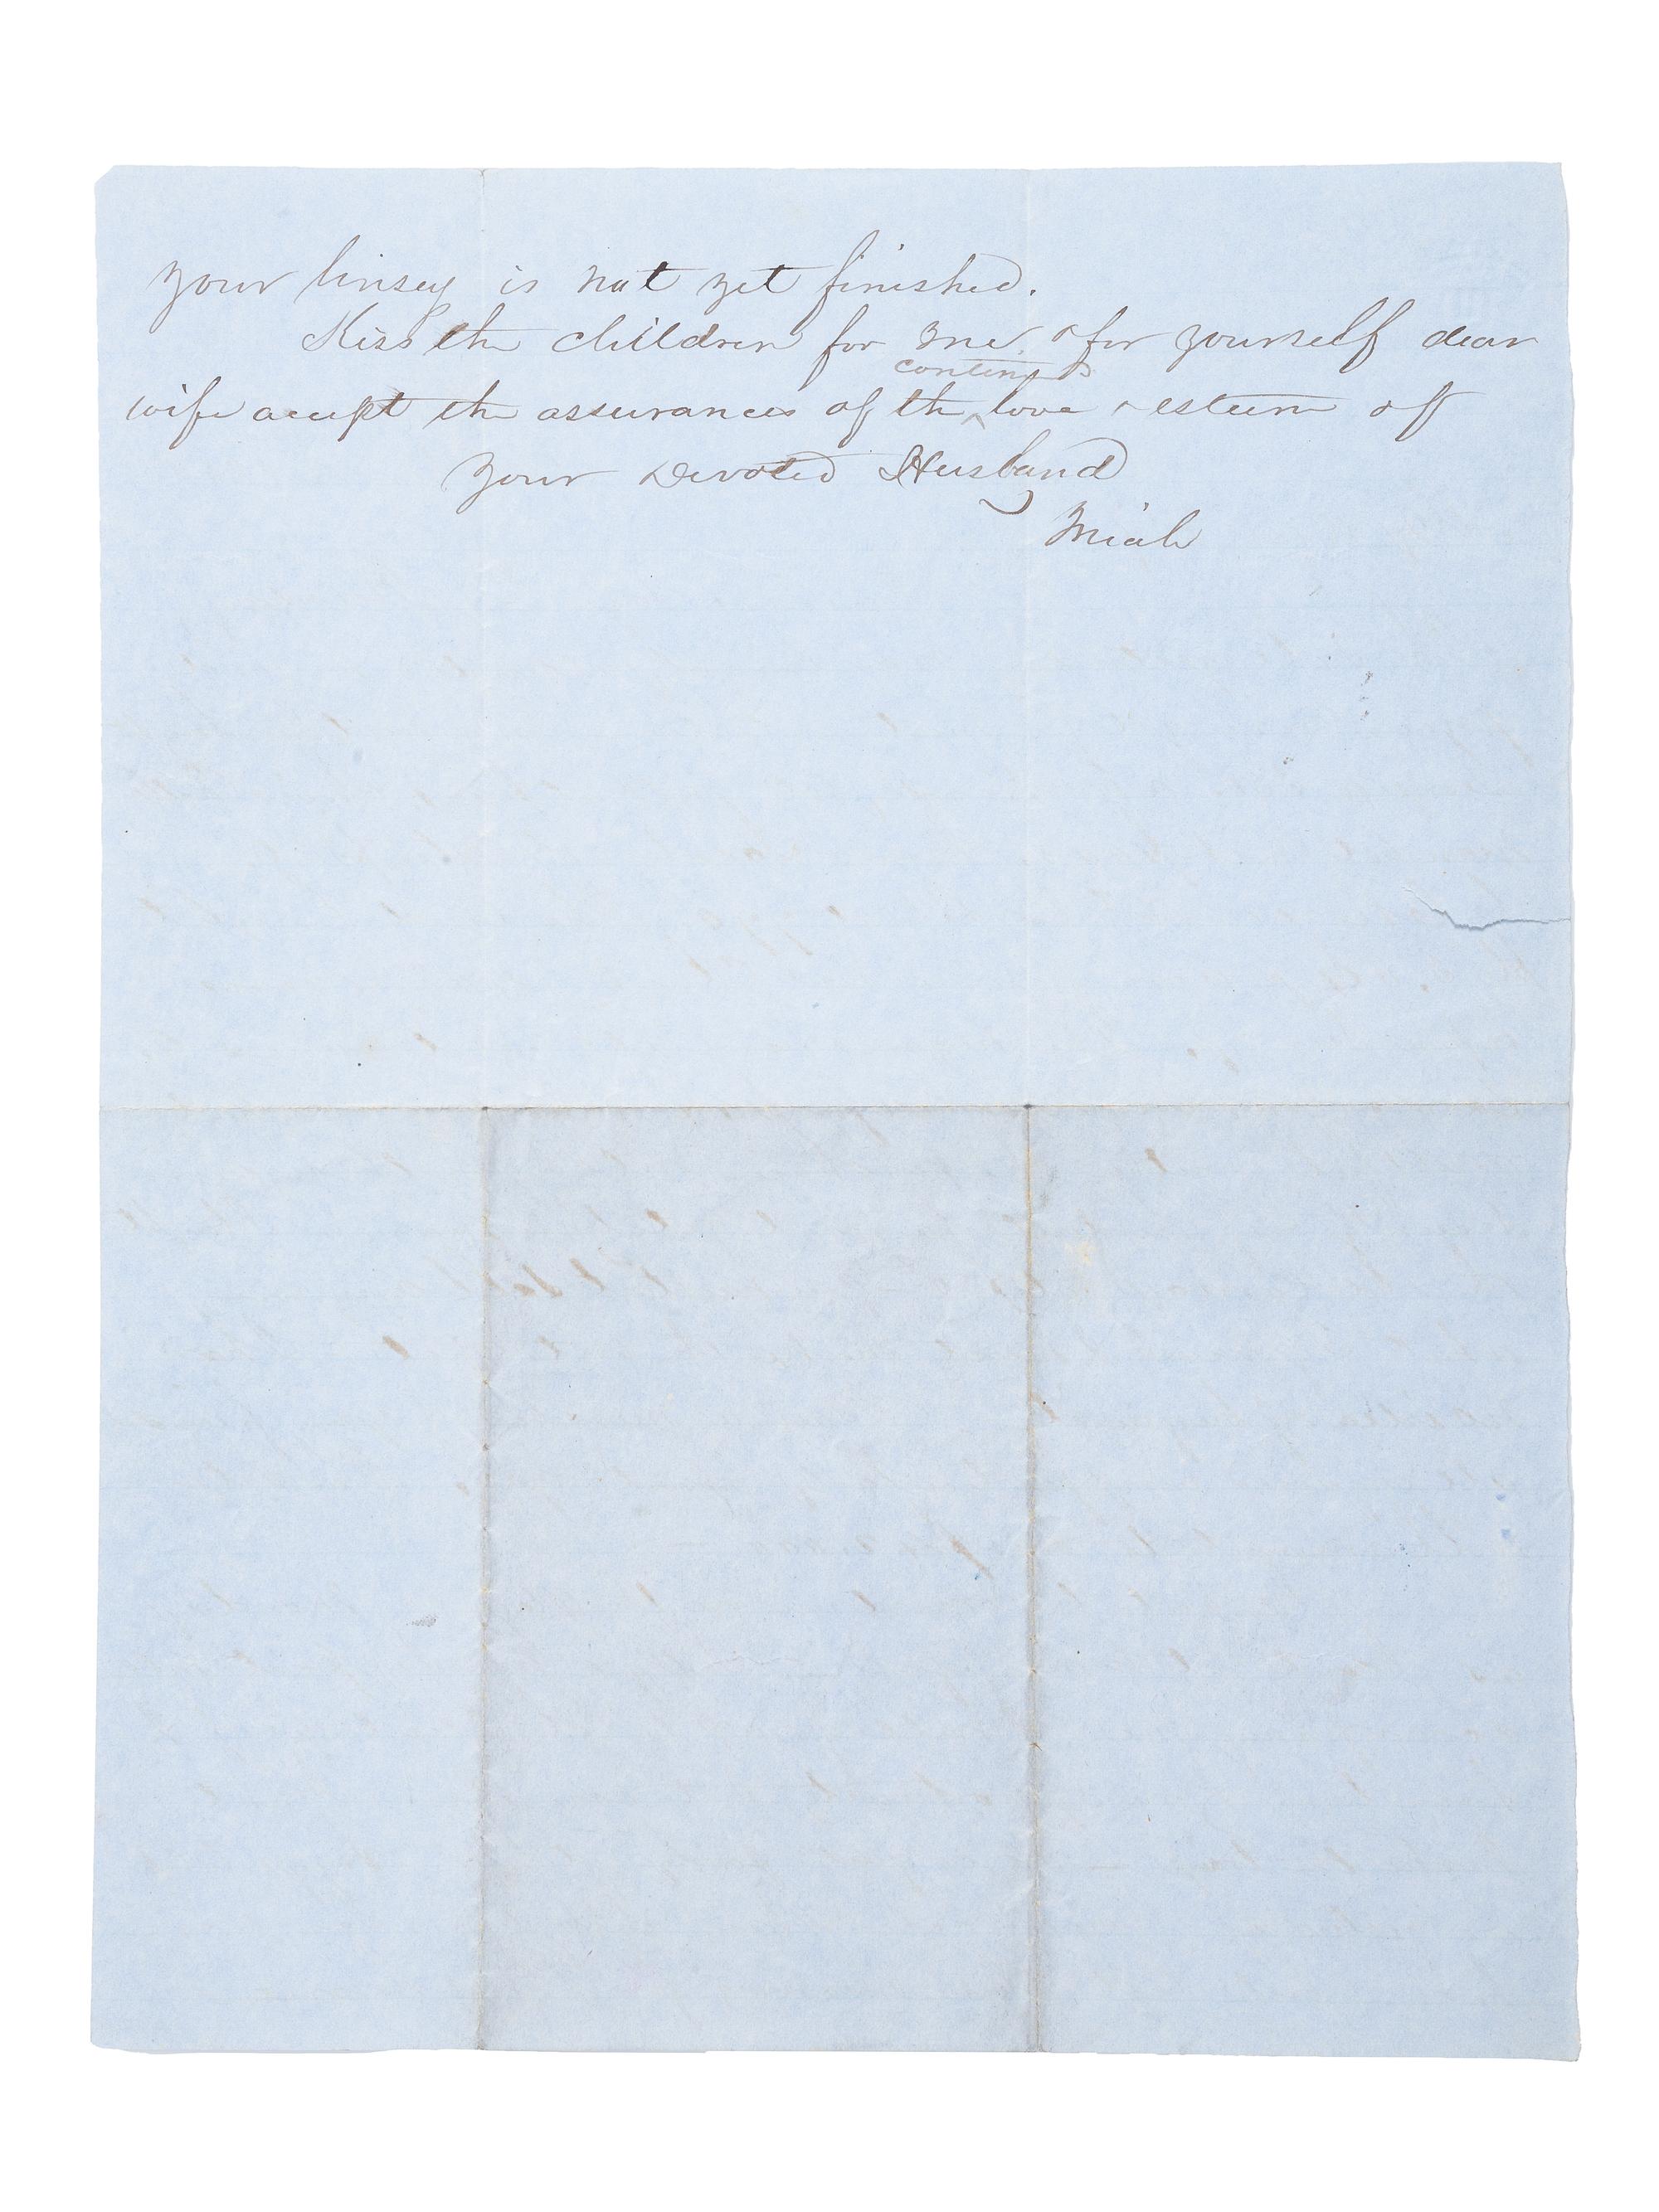 your linsey is not yet finished.
Kiss the children for me & for yourself dear
continued
wife accept the assurances of the love & esteem of
your Devoted Husband
Miah